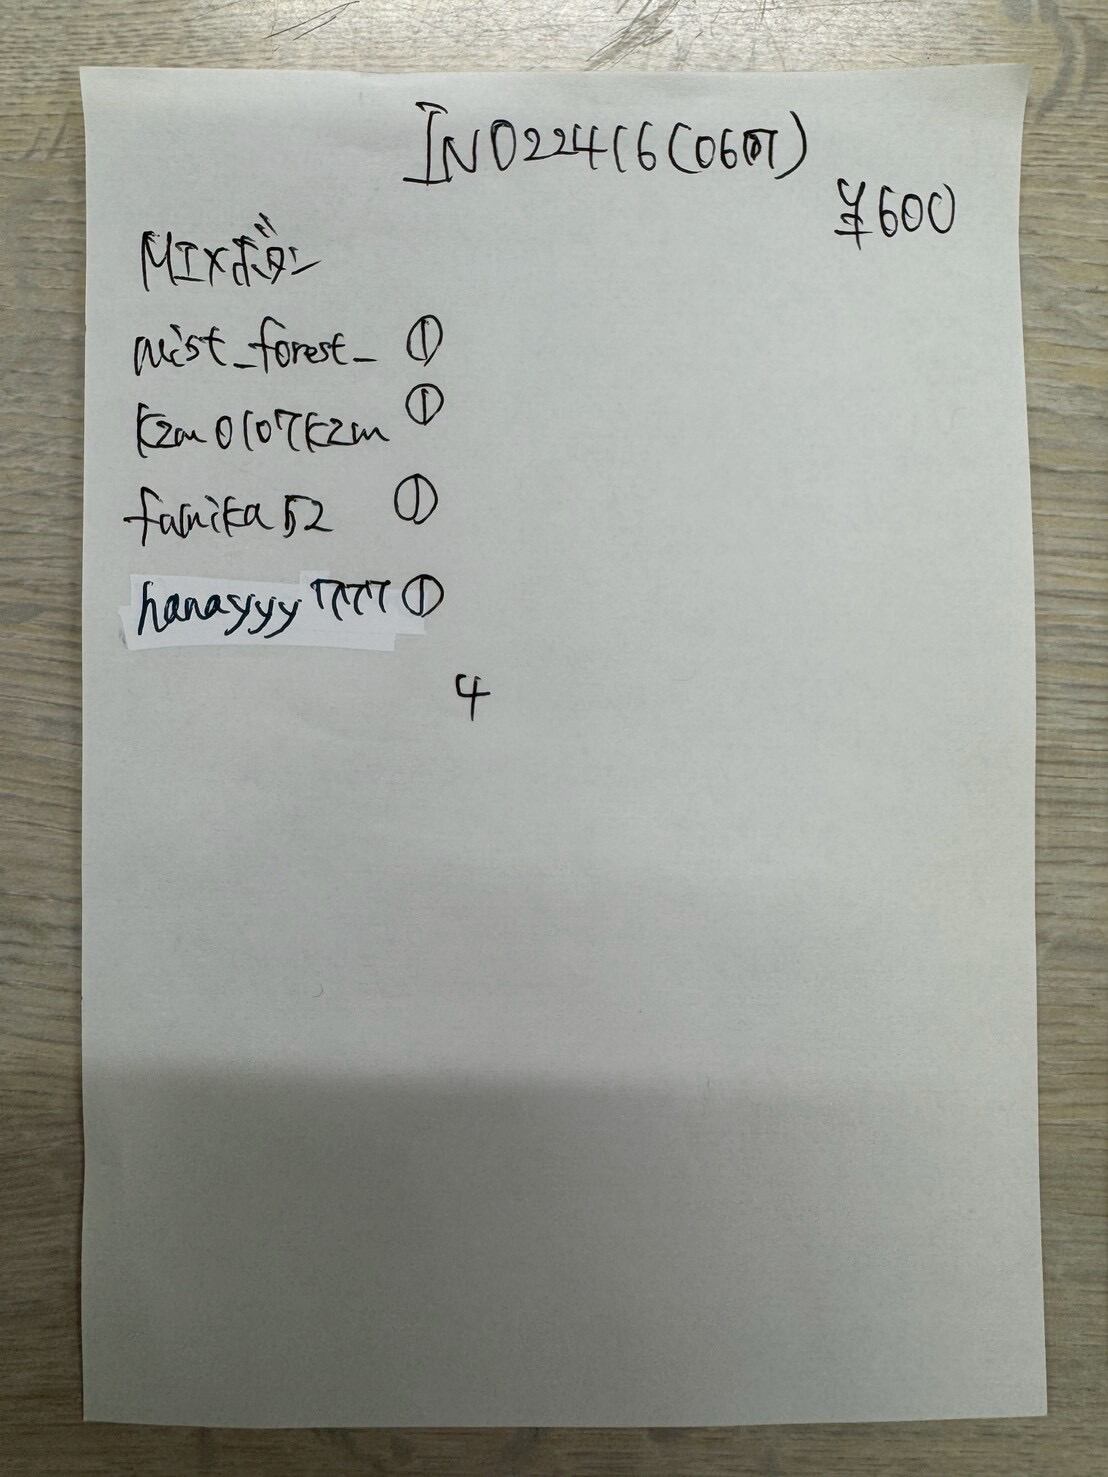 IN022416(0607)
¥600
MIXボタン
mist_forest_ ①
kzm0107kzm ①
famika52 ①
hanayyy7777 ①
4